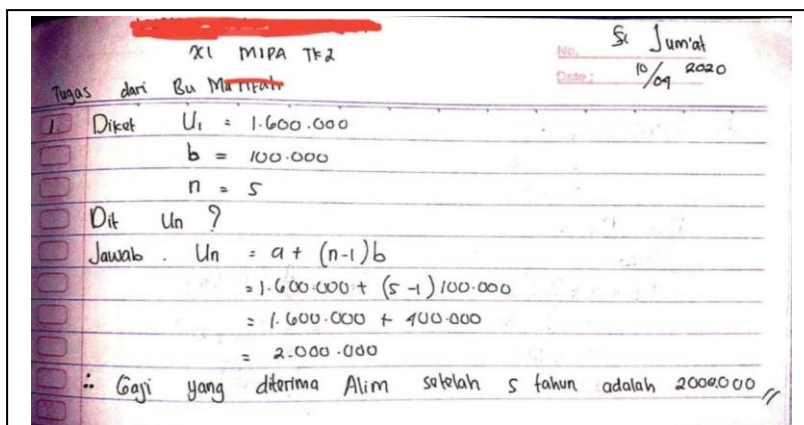 XI MIPA TK2
No. Jum'at
Date: 10/09 2020
Tugas dari Bu
1. Diket U1 = 1.600.000
b = 100.000
n = 5
Dit Un ?
Jawab . Un = a + (n-1)b
= 1.600.000 + (5-1)100.000
= 1.600.000 + 400.000
= 2.000.000
∴ Gaji yang diterima Alim setelah 5 tahun adalah 2000.000 //